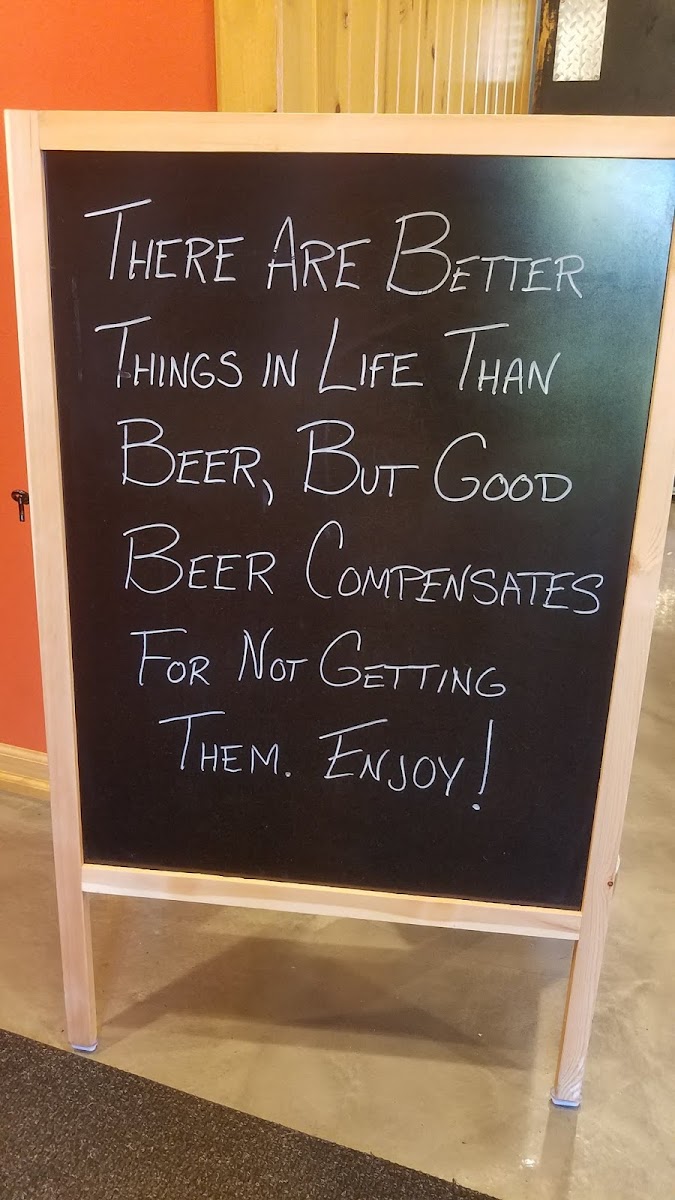 There Are Better
Things in Life Than
Beer, But Good
Beer Compensates
For Not Getting
Them. Enjoy!